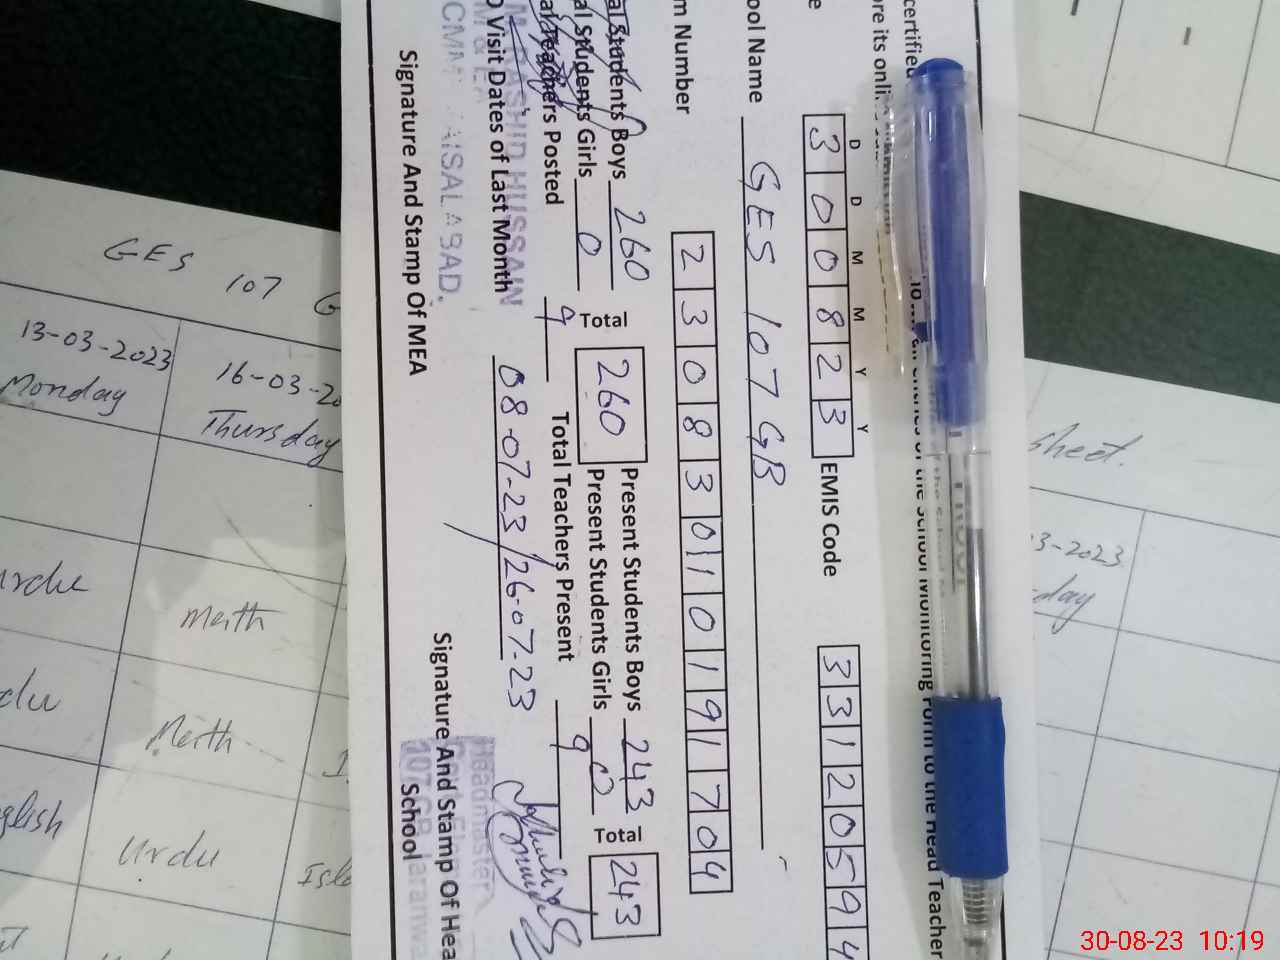 certified
ore its onli
10 all entries of the School Monitoring Form to the Head Teacher
D D M M Y Y
3 0 0 8 2 3 EMIS Code 3 3 1 2 0 5 9 4
ool Name GES 107 GB
m Number 2 3 0 8 3 0 1 0 1 9 1 7 0 4
al Students Boys 260 Total 260 Present Students Boys 243 Total 243
al Students Girls 0 Present Students Girls 0
al Teachers Posted 9 Total Teachers Present 9
Visit Dates of Last Month 08-07-23/26-07-23
M. RASHID HUSSAIN
MEA
CMMF FAISALABAD.
Signature And Stamp Of MEA
Signature And Stamp Of Hea
School
Headmaster
107 GB Jaranwa
GES 107 G
13-03-2023
Monday
16-03-20
Thursday
urdu
Math
du
Math
glish
Urdu
Isla
sheet.
3-2023
day
30-08-23 10:19